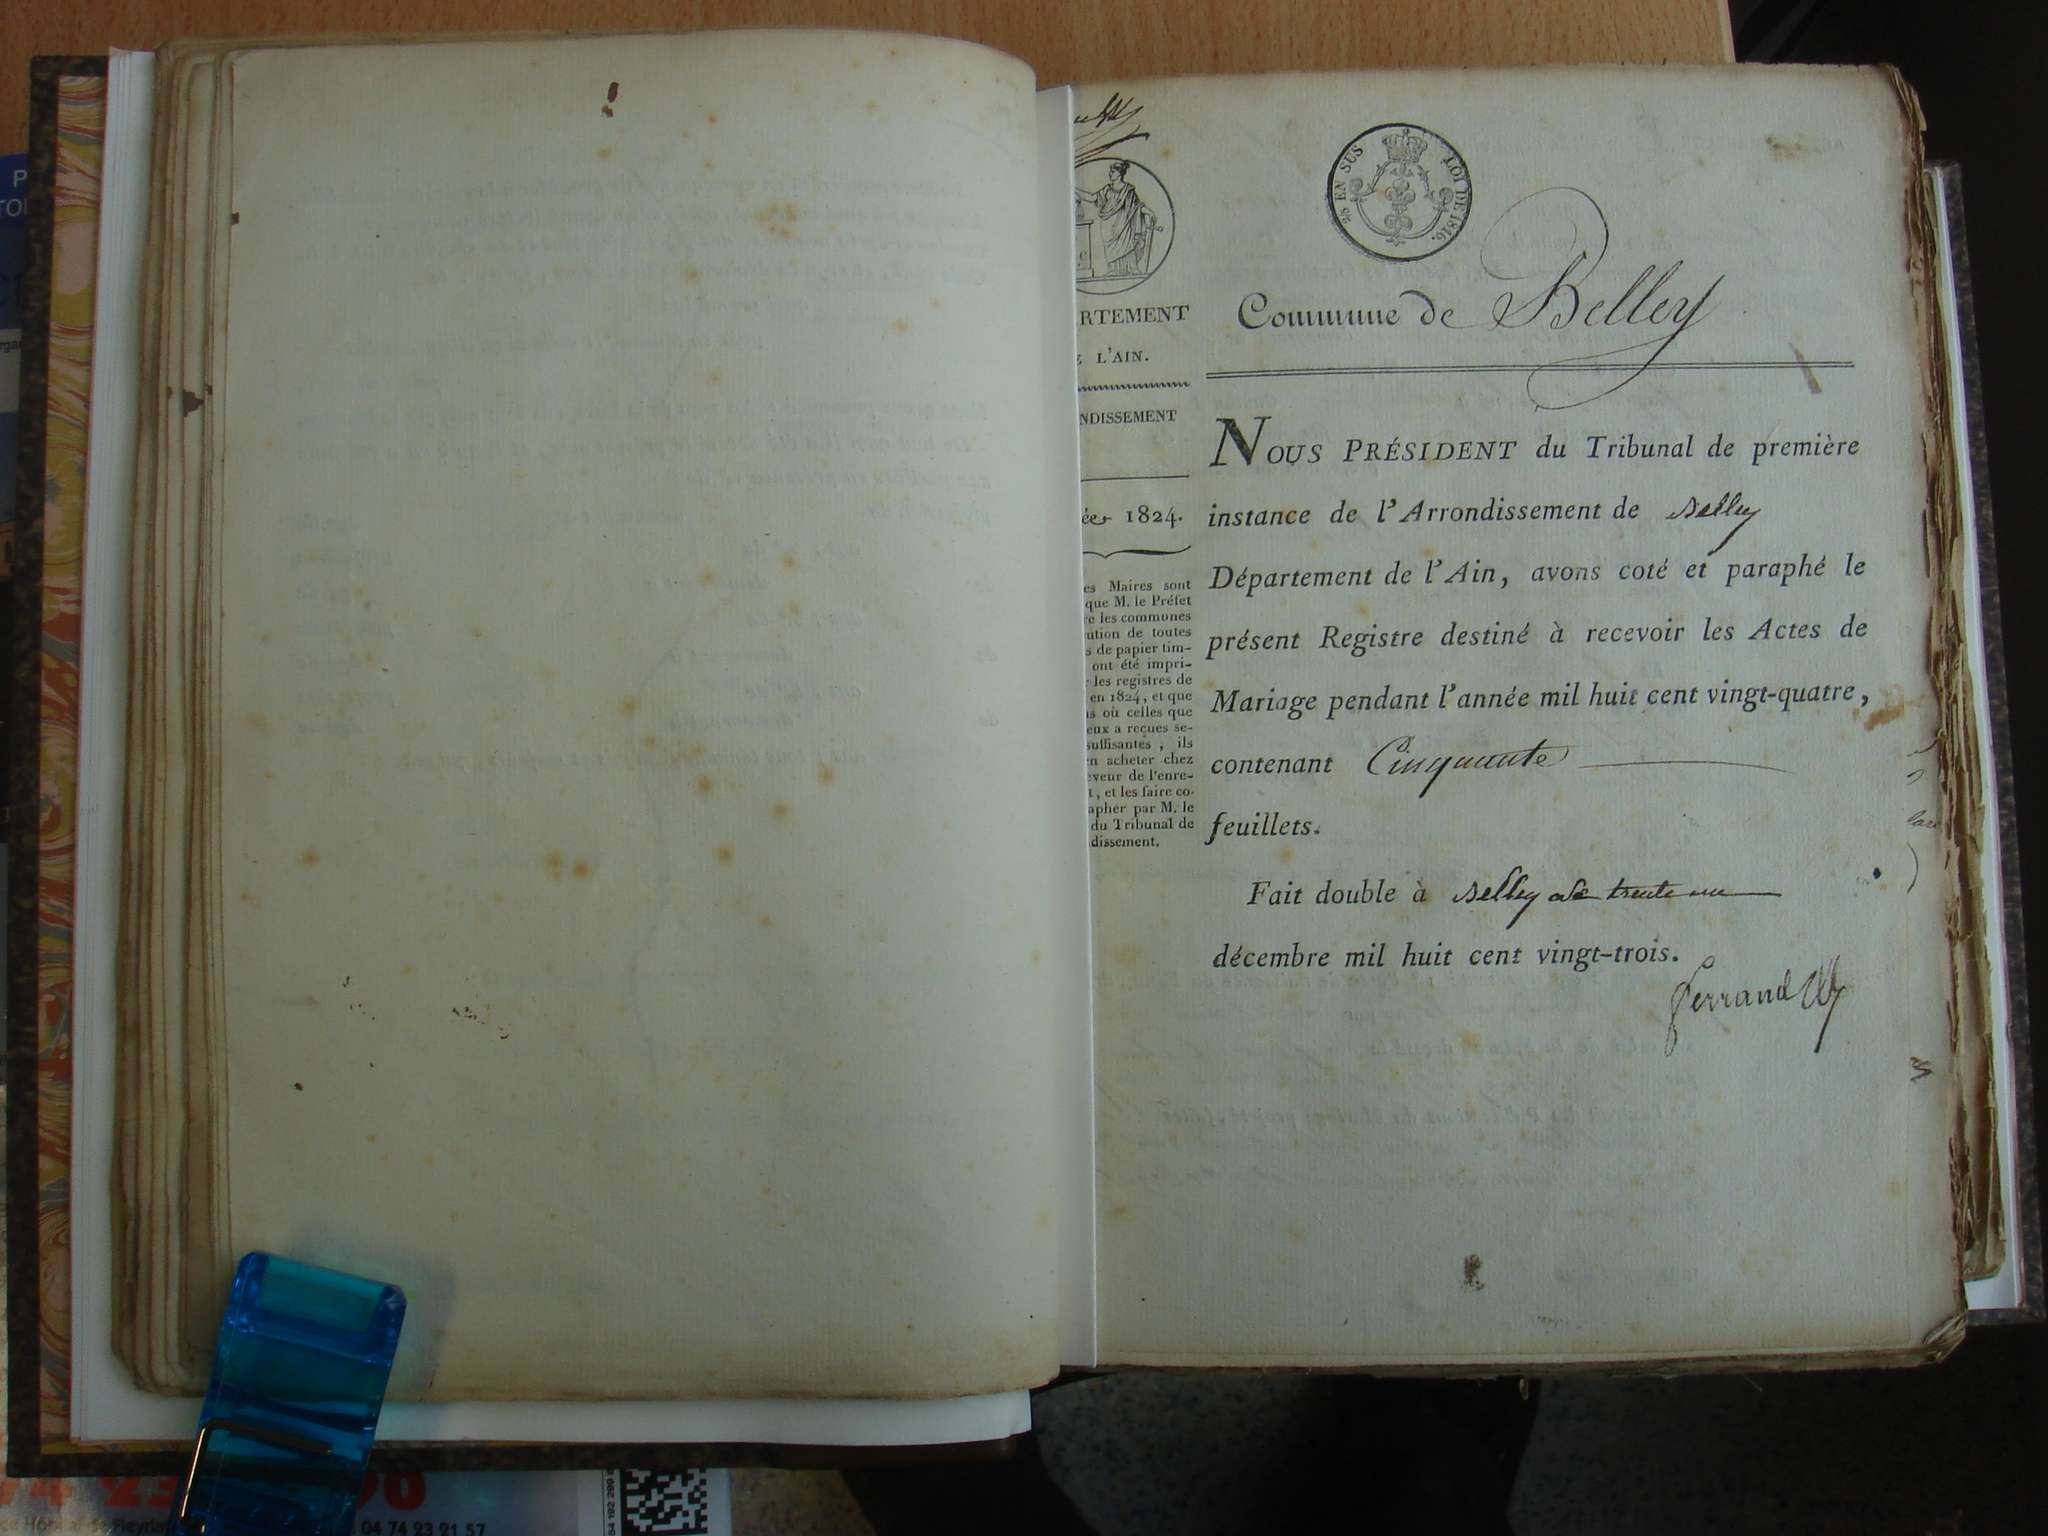 RTEMENT
L'AIN.
NDISSEMENT
1824.
es Maires sont
que M. le Préfet
re les communes
ution de toutes
s de papier tim-
ont été impri-
les registres de
en 1824, et que
s où celles que
eux a reçues se-
suffisantes, ils
n acheter chez
eveur de l'enre-
t, et les faire co-
apher par M. le
du Tribunal de
dissement.
EN SUS LOI DE 1816.
Commune de Belley
NOUS PRÉSIDENT du Tribunal de première
instance de l'Arrondissement de Belley
Département de l'Ain, avons coté et paraphé le
présent Registre destiné à recevoir les Actes de
Mariage pendant l'année mil huit cent vingt-quatre,
contenant Cinquante
feuillets.
Fait double à Belley le trente un
décembre mil huit cent vingt-trois.
Ferrand
04 74 23 21 57